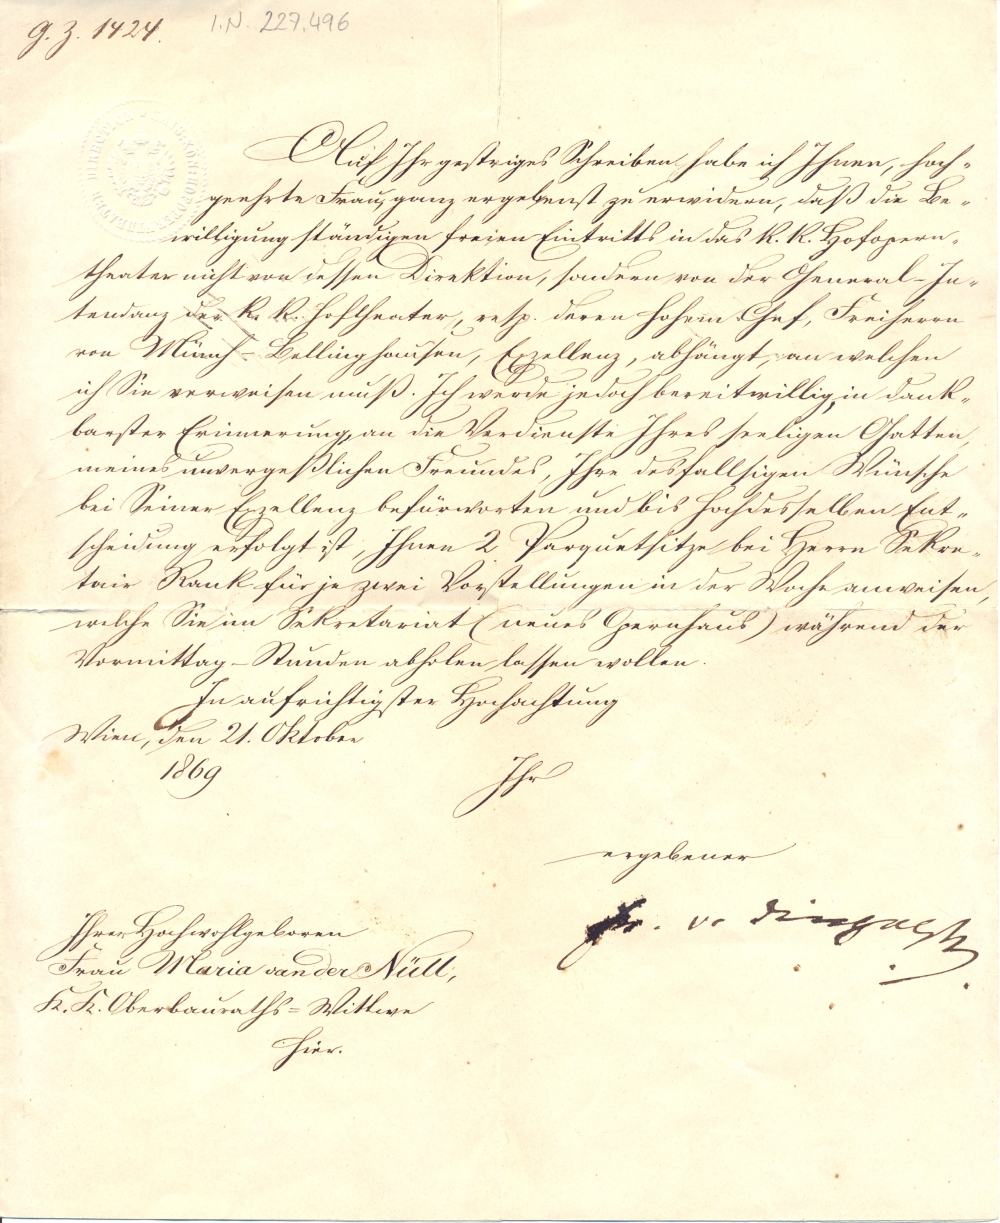 G. Z. 1424.
I.N. 227.496
Auf Ihr gestriges Schreiben habe ich Ihnen, hoch-
geehrte Frau, ganz ergebenst zu erwidern, daß die Be-
willigung ständigen freien Eintritts in das K. K. Hofopern-
theater nicht von dessen Direktion, sondern von der General-In-
tendanz der K. K. Hoftheater, resp. deren hohem Chef, Freiherrn
von Münch-Bellinghausen, Exzellenz, abhängt, an welchen
ich Sie verweisen muß. Ich werde jedoch bereitwillig, in dank-
barster Erinnerung, an die Verdienste Ihres seeligen Gatten,
meines unvergeßlichen Freundes, Ihre desfallsigen Wünsche
bei Seiner Exzellenz befürworten und bis Hochdesselben Ent-
scheidung erfolgt ist, Ihnen 2 Parquetsitze bei Herrn Sekre-
tair Rank für je zwei Vorstellungen in der Woche anweisen,
welche Sie im Sekretariat (neues Opernhaus) während der
Vormittag-Stunden abholen lassen wollen.
In aufrichtigster Hochachtung
Wien, den 21. Oktober
1869
Ihr
ergebener
Fr. v. Dingelstedt
Ihrer Hochwohlgeboren
Frau Maria van der Nüll,
K. K. Oberbauraths-Wittwe
hier.